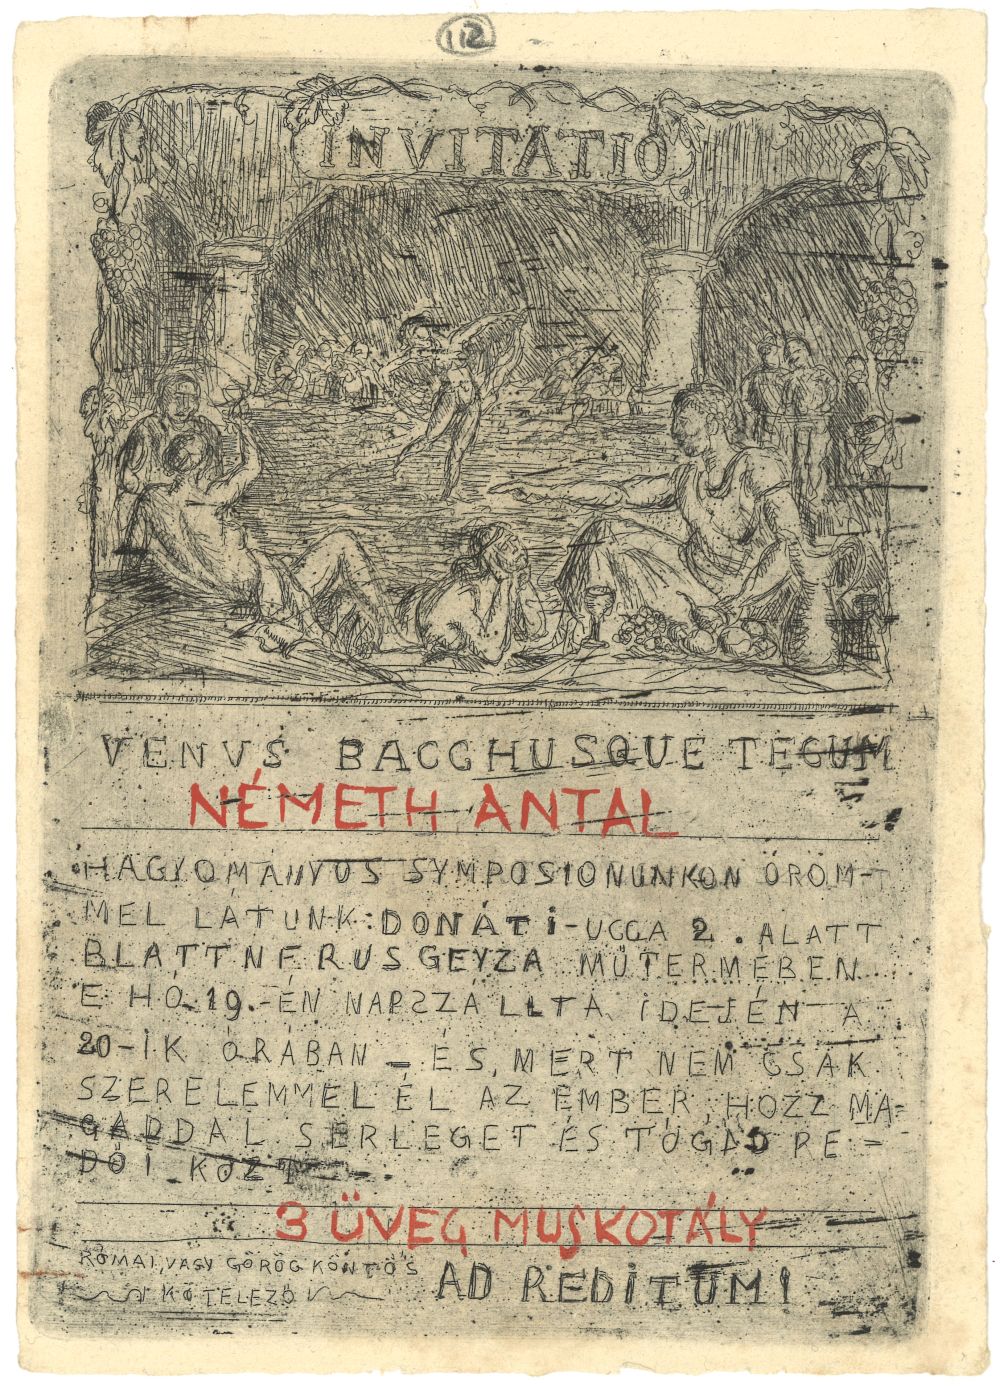 112
INVITATIO
VENVS BACCHUSQUE TECUM
NÉMETH ANTAL
HAGYOMÁNYOS SYMPOSIONUNKON ÖRÖM-
MEL LÁTUNK: DONÁTI-UCCA 2. ALATT
BLATTNERUSGEYZA MŰTERMÉBEN
E HÓ 19.-ÉN NAPSZÁLLTA IDEJÉN A
20-IK ÓRÁBAN - ÉS, MERT NEM CSAK
SZERELEMMEL ÉL AZ EMBER, HOZZ MA=
GADDAL SERLEGET ÉS TÓGÁD RE=
DŐI KÖZT
3 ÜVEG MUSKOTÁLY
RÓMAI, VAGY GÖRÖG KÖNTÖS
KÖTELEZŐ
AD REDITUM!